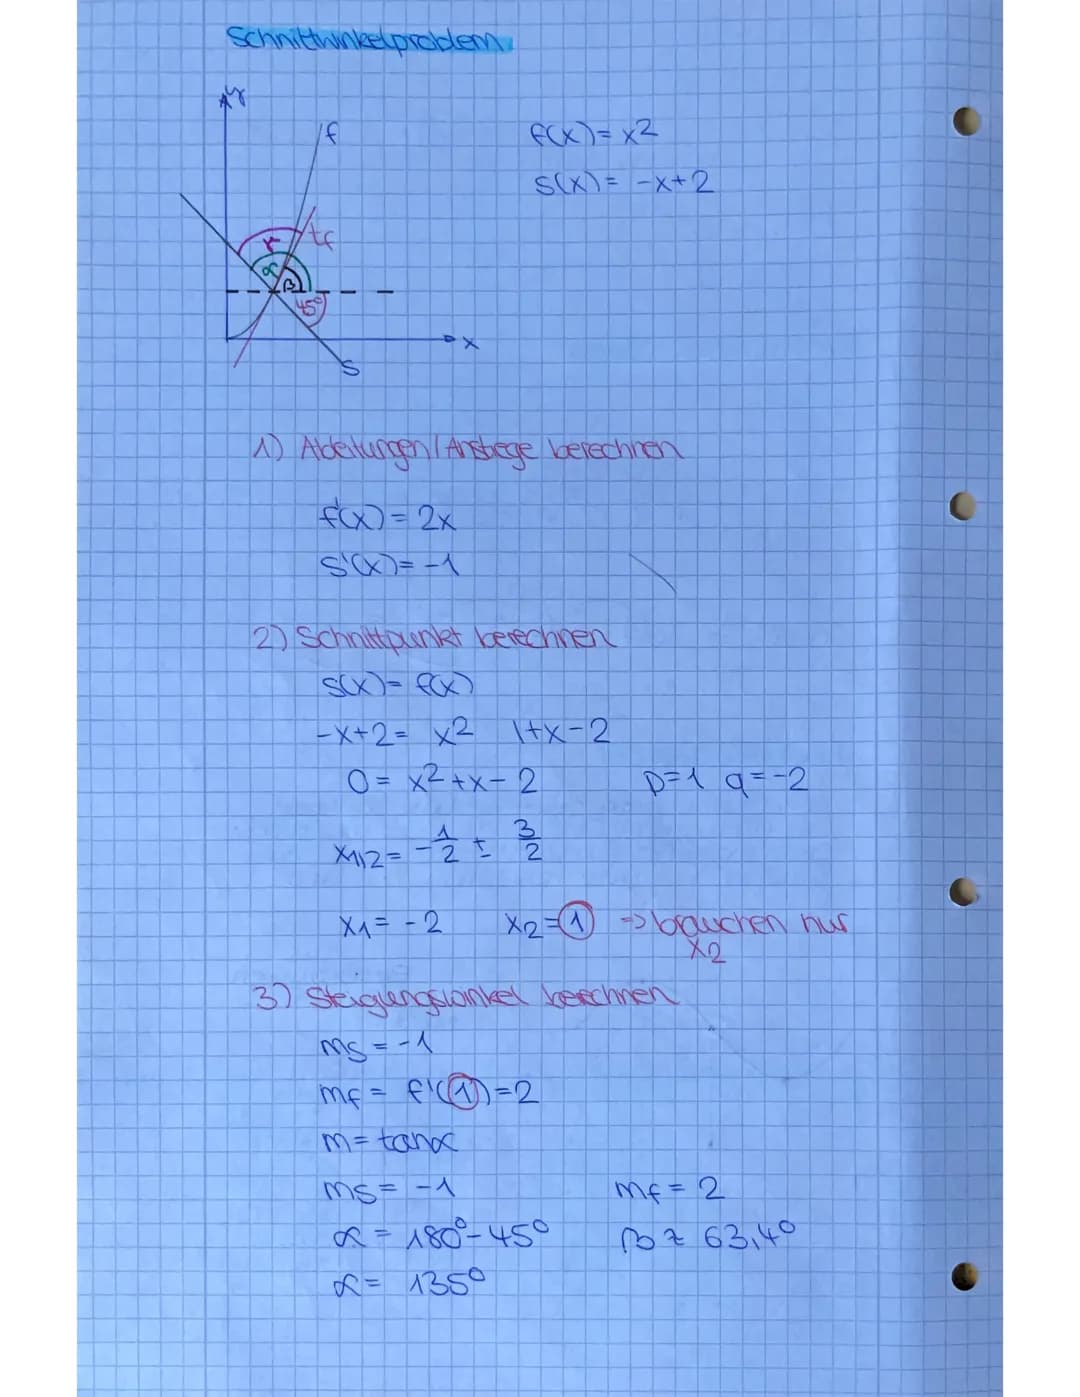 Schnittwinkelproblem
y
f
f(x) = x2
s(x) = -x+2
γ
tf
α
β
45°
x
s
1) Ableitungen/Anstiege berechnen
f'(x) = 2x
s'(x) = -1
2) Schnittpunkt berechnen
s(x) = f(x)
-x+2 = x2 |+x-2
0 = x2+x-2 p=1 q=-2
x1/2 = -1/2 ± 3/2
x1 = -2 x2 = 1 => brauchen nur
x2
3) Steigungswinkel berechnen
ms = -1
mf = f'(1) = 2
m = tanα
ms = -1 mf = 2
α = 180°-45° β ≈ 63,4°
α = 135°